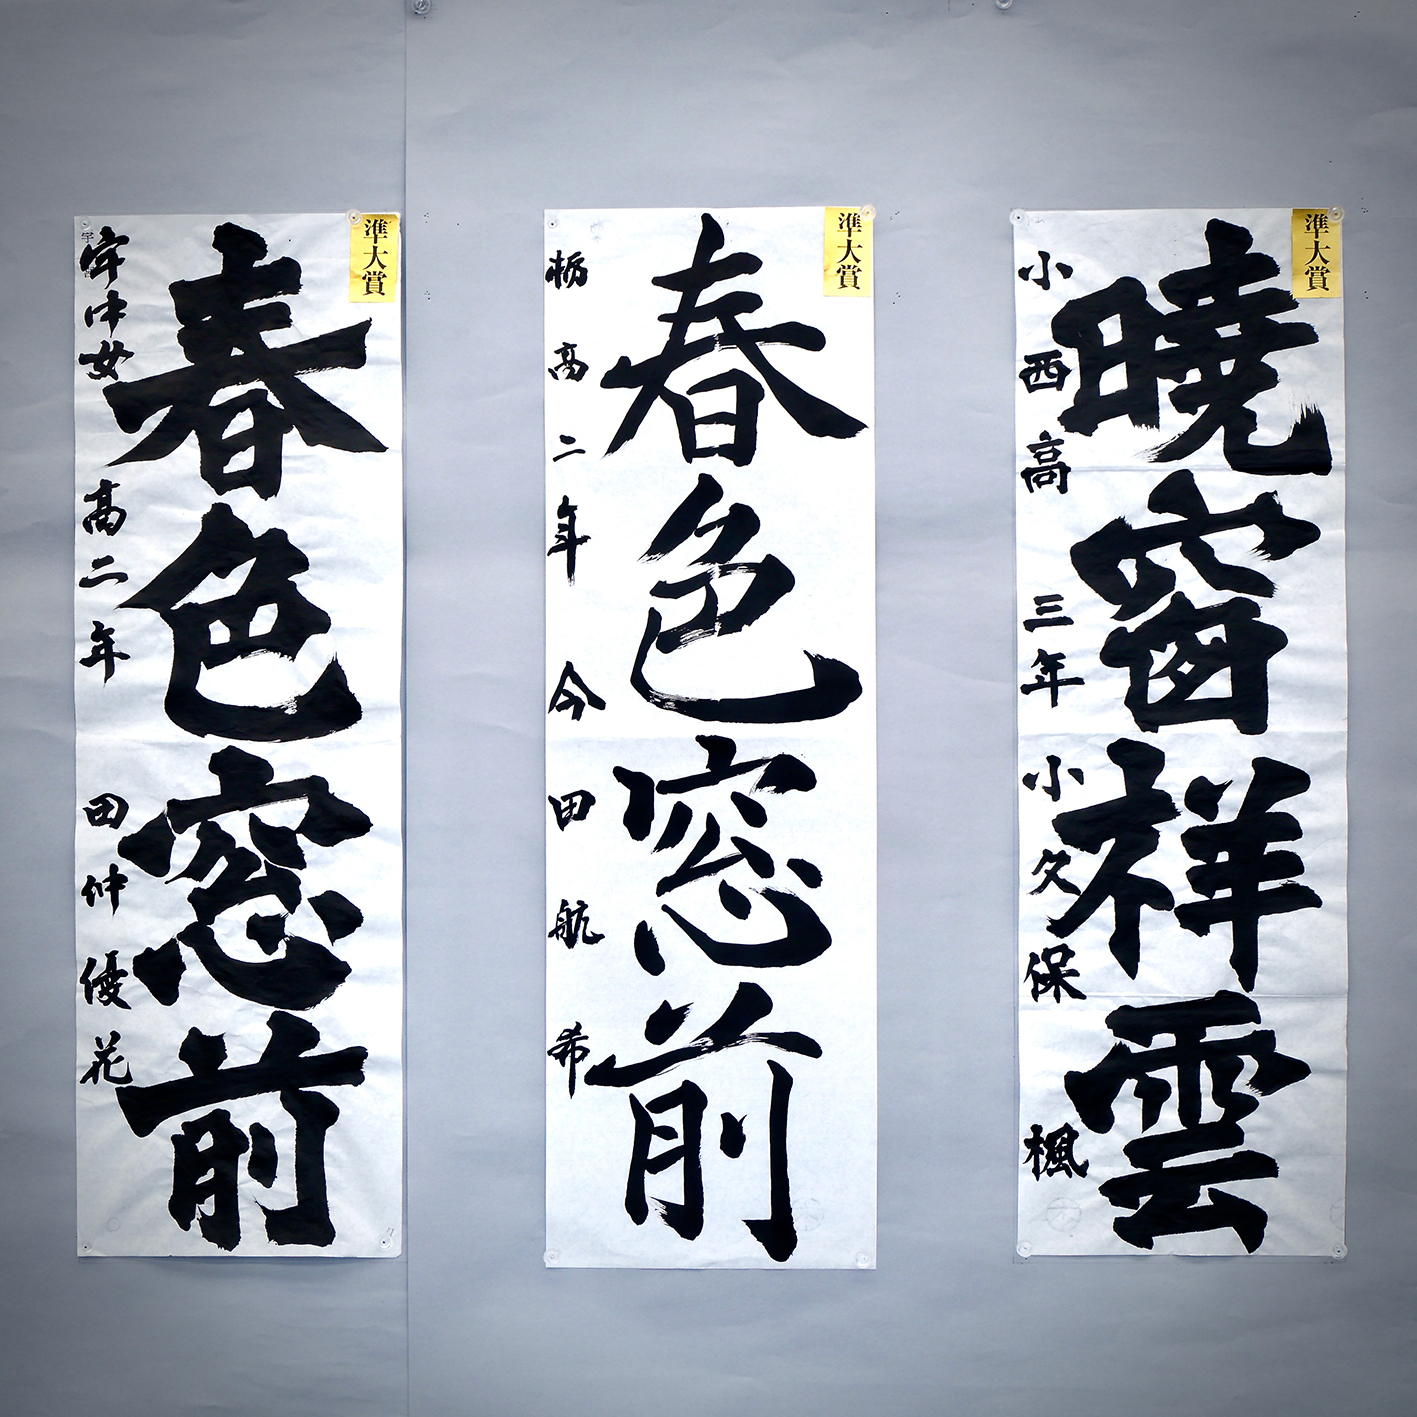 準大賞
曉窗祥雲
小西高三年小久保楓
準大賞
春色窓前
栃高二年今田航希
準大賞
春色窓前
宇中女高二年田仲優花